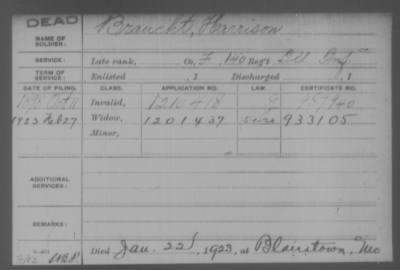 DEAD
NAME OF SOLDIER: Brauckt, Harrison
SERVICE: Late rank, Co. F, 140 Reg't Ill Inf
TERM OF SERVICE: Enlisted , 1 Discharged , 1
DATE OF FILING. CLASS. APPLICATION NO. LAW. CERTIFICATE NO.
Oct 11 Invalid, 1210418
1923 Feb 27 Widow, 1201437 933105
Minor,
ADDITIONAL SERVICES:
REMARKS:
Died Jan. 22, 1923, at Blairstown, Mo